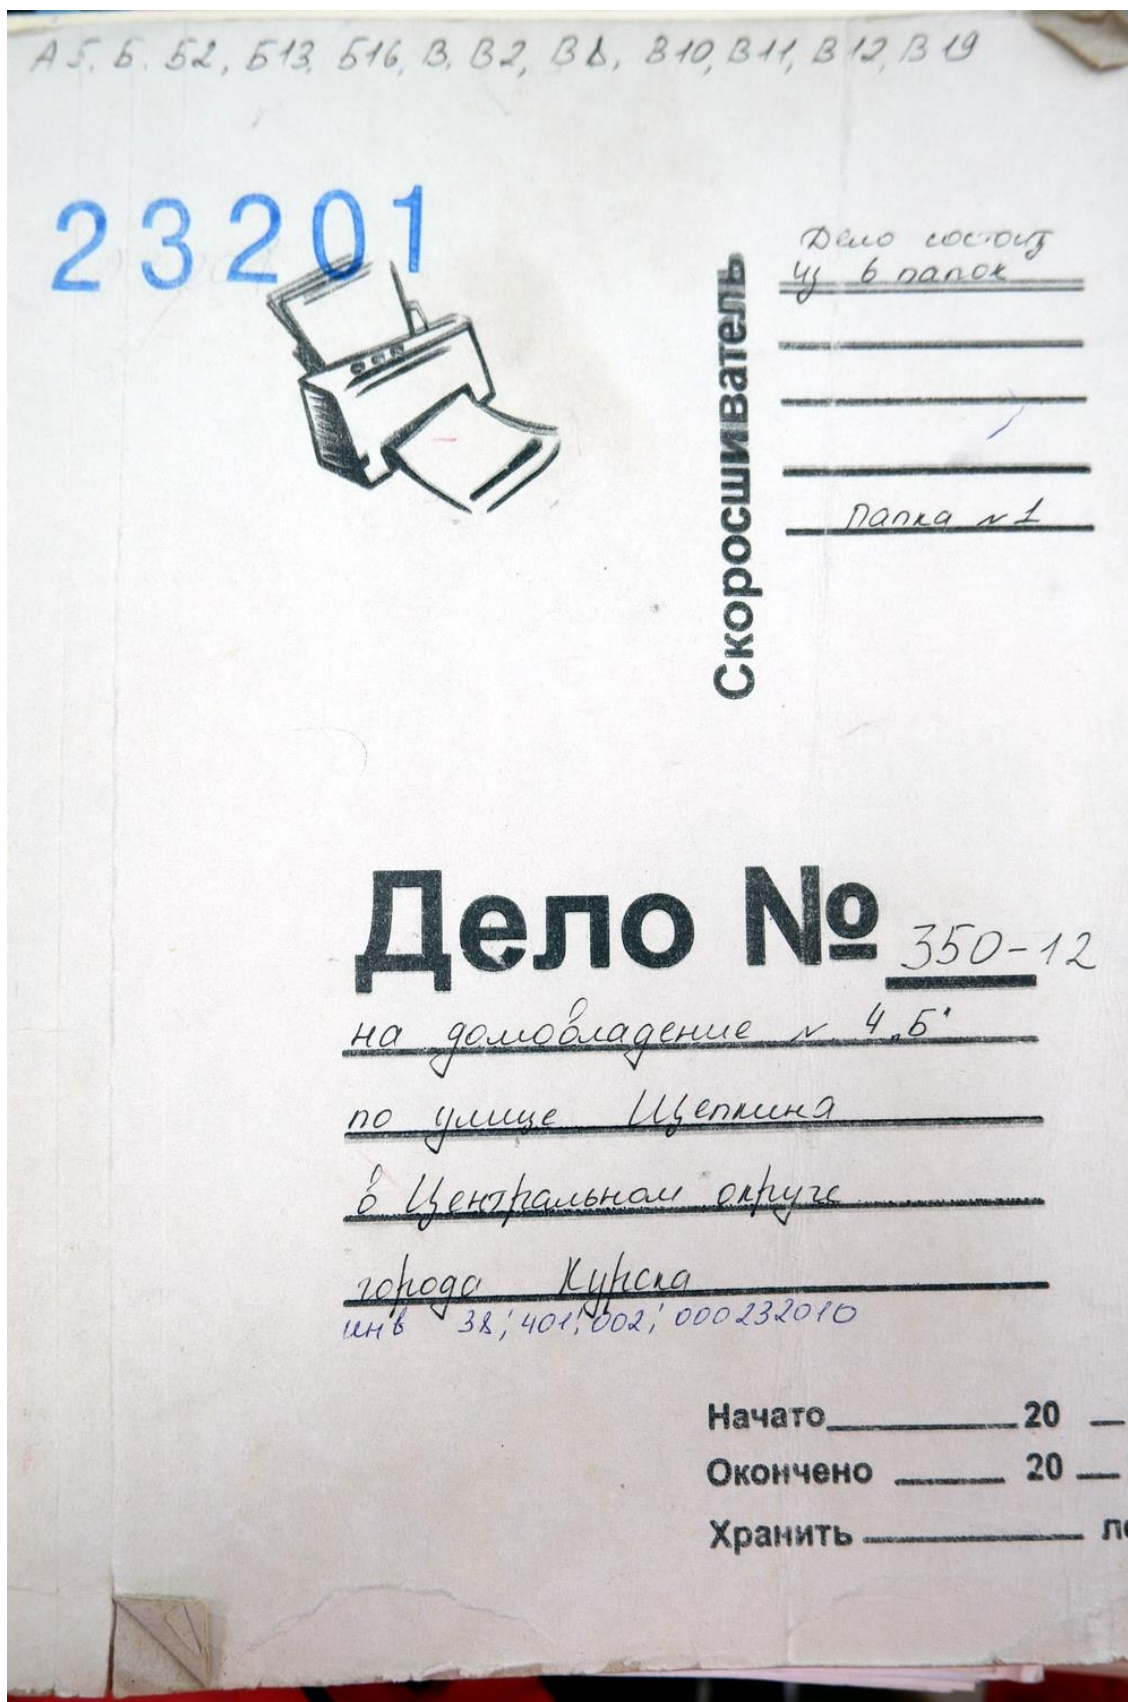 А5, Б. Б2, Б13, Б16, В, В2, В8, В10, В11, В12, В19
23201
Дело состоит
из 6 папок
Папка №1
Скоросшиватель
Дело № 350-12
на домовладение № 4 „Б"
по улице Щепкина
в Центральном округе
города Курска
инв 38; 401; 002; 000232010
Начато 20
Окончено 20
Хранить ле